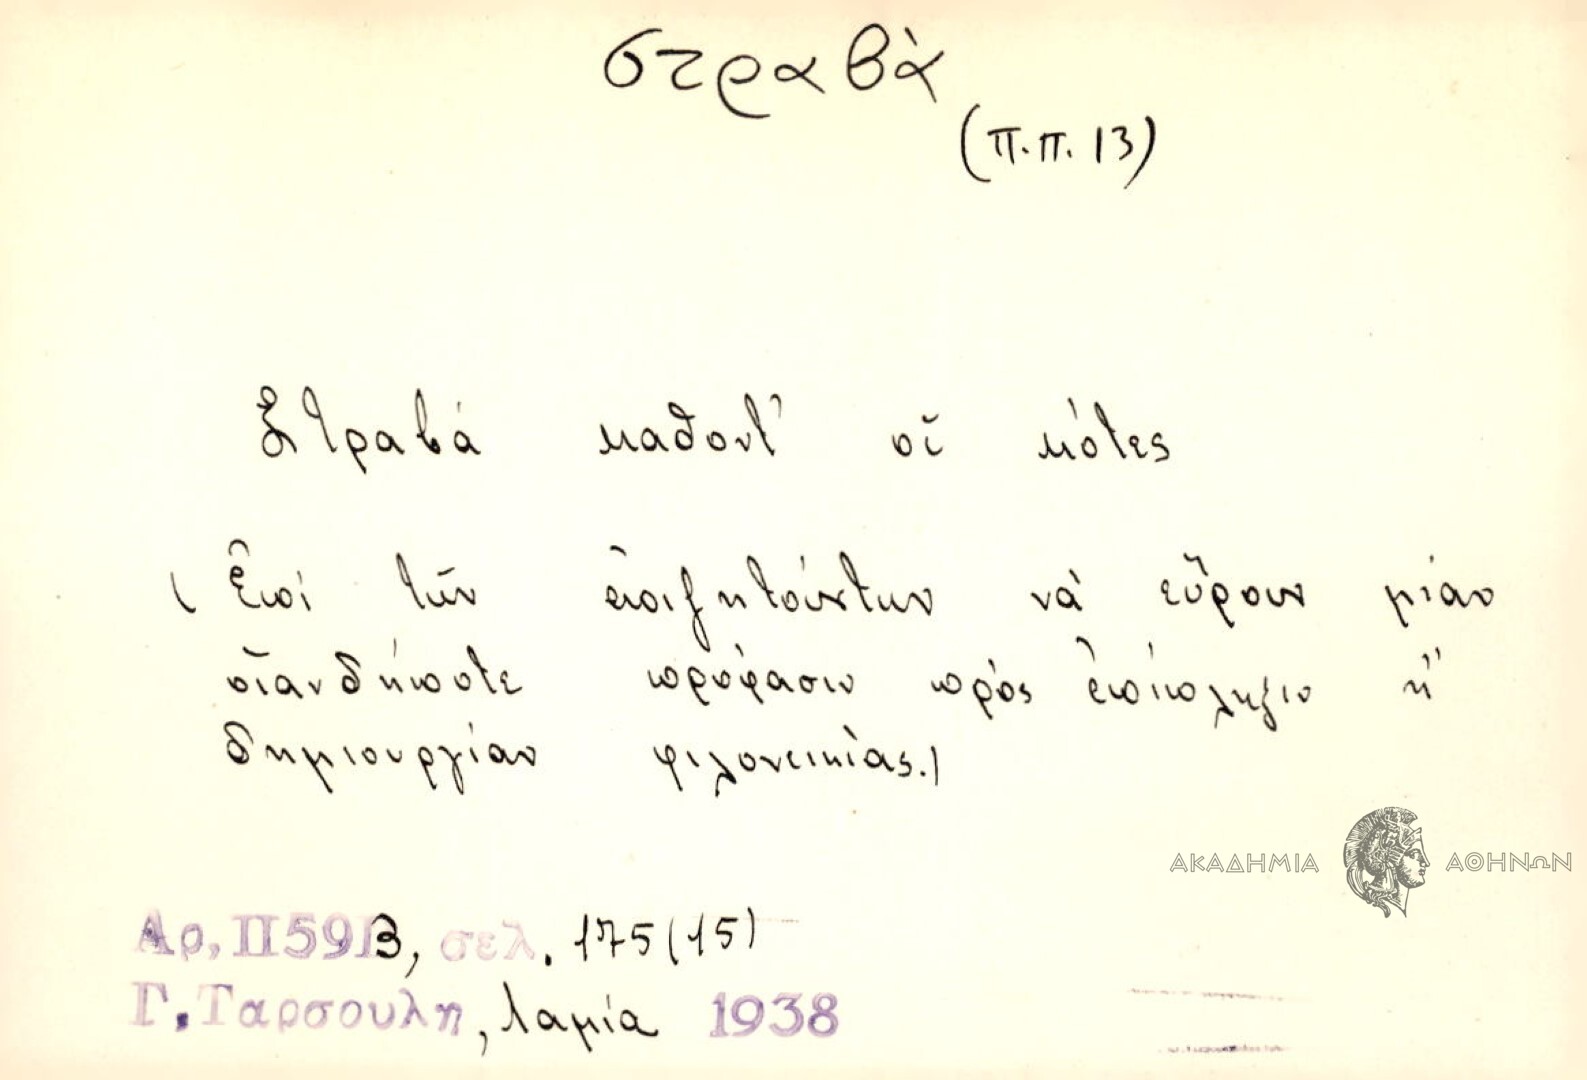 στραβὰ
(π.π. 13)
Στραβά καθοντ' οἱ κότες
(Ἐπί τῶν ἐπιζητούντων νά εὕρουν μίαν
οἱανδήποτε πρόφασιν πρός ἐπίπληξιν ἤ
δημιουργίαν φιλονεικίας.)
ΑΚΑΔΗΜΙΑ ΑΘΗΝΩΝ
Αρ. ΙΙ59 Β, σελ. 175 (15)
Γ. Ταρσουλη, Λαμία 1938